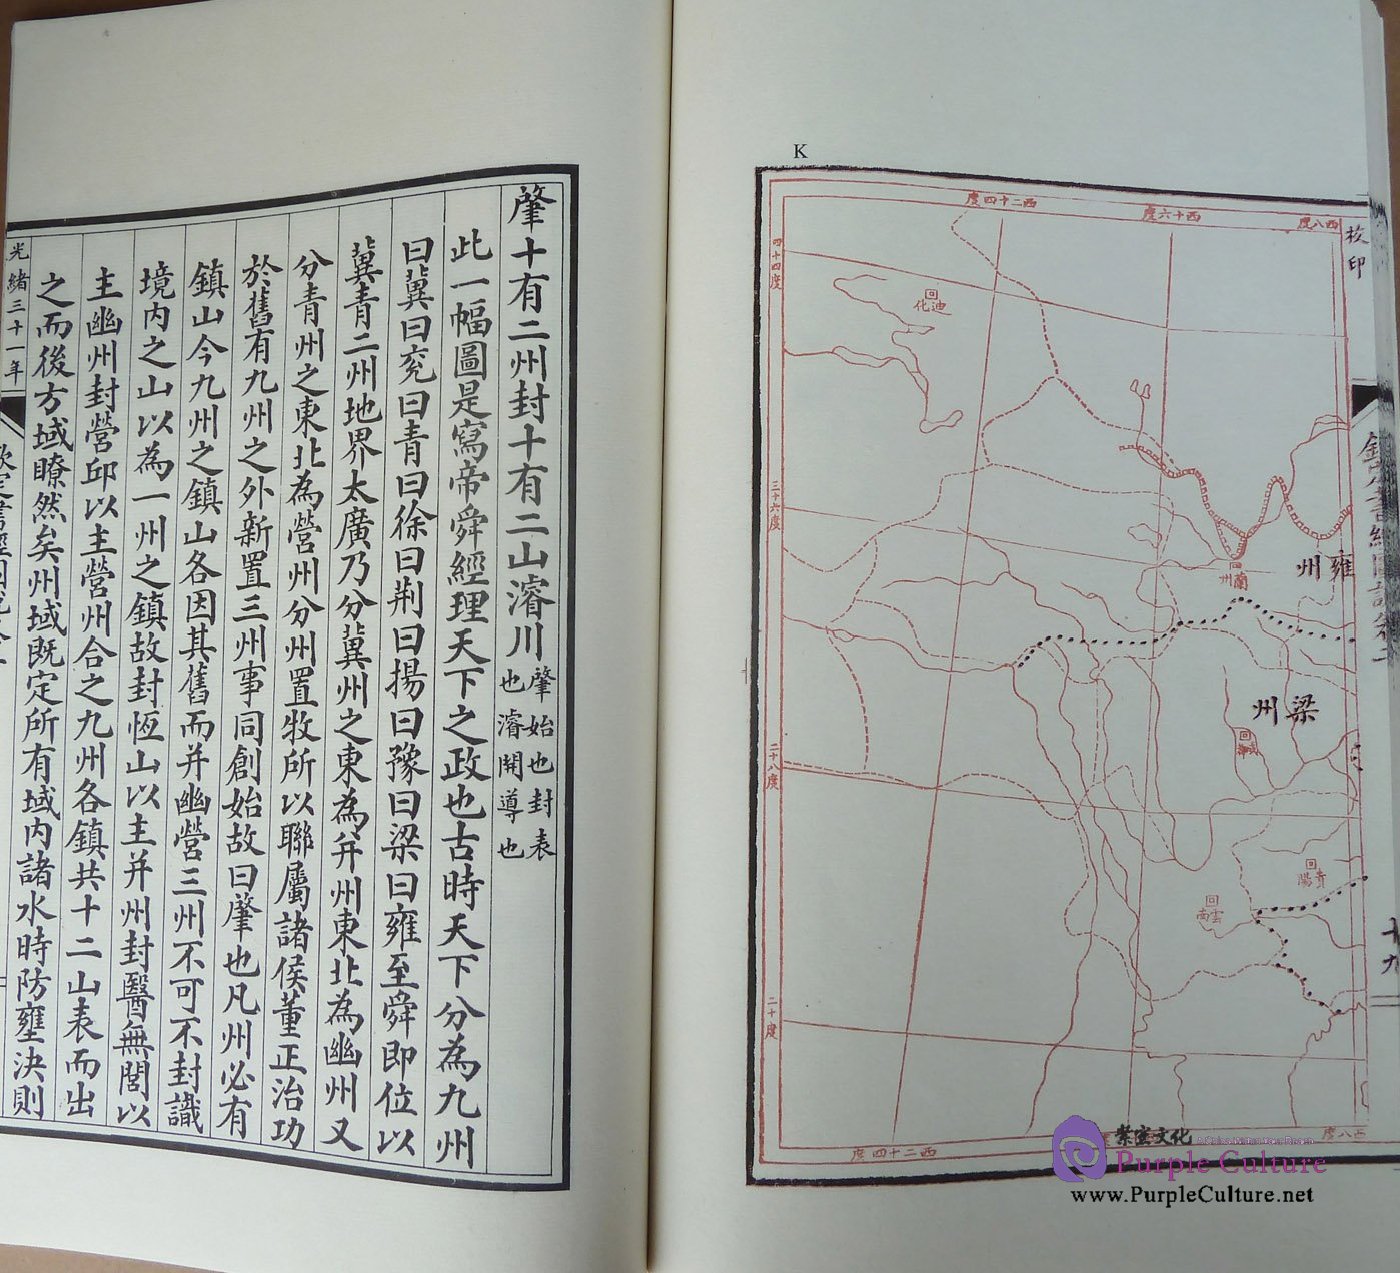 肇十有二州封十有二山濬川肇始也封表也濬開導也
此一幅圖是寫帝舜經理天下之政也古時天下分為九州
曰冀曰兗曰青曰徐曰荆曰揚曰豫曰梁曰雍至舜即位以
冀青二州地界太廣乃分冀州之東為并州東北為幽州又
分青州之東北為營州分州置牧所以聯屬諸侯董正治功
於舊有九州之外新置三州事同創始故曰肇也凡州必有
鎮山今九州之鎮山各因其舊而并幽營三州不可不封識
境内之山以為一州之鎮故封恆山以主并州封醫無閭以
主幽州封營邱以主營州合之九州各鎮共十二山表而出
之而後方域瞭然矣州域既定所有域内諸水時防壅決則
光緒三十一年
K
校印
十九
西二十四度
西十六度
西八度
四十四度
三十六度
二十八度
二十度
迪化
蘭州
雍州
梁州
貴陽
雲南
西二十四度
西八度
紫霄文化
Purple Culture
www.PurpleCulture.net